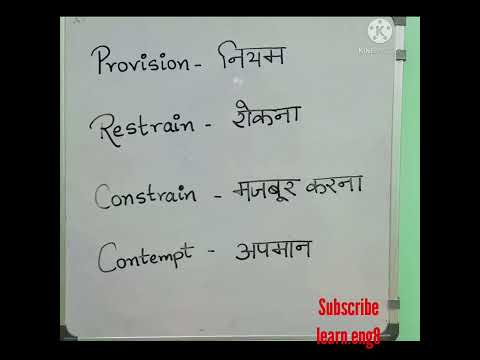 Provision - नियम
Restrain - रोकना
Constrain - मजबूर करना
Contempt - अपमान
Subscribe
learn.eng8